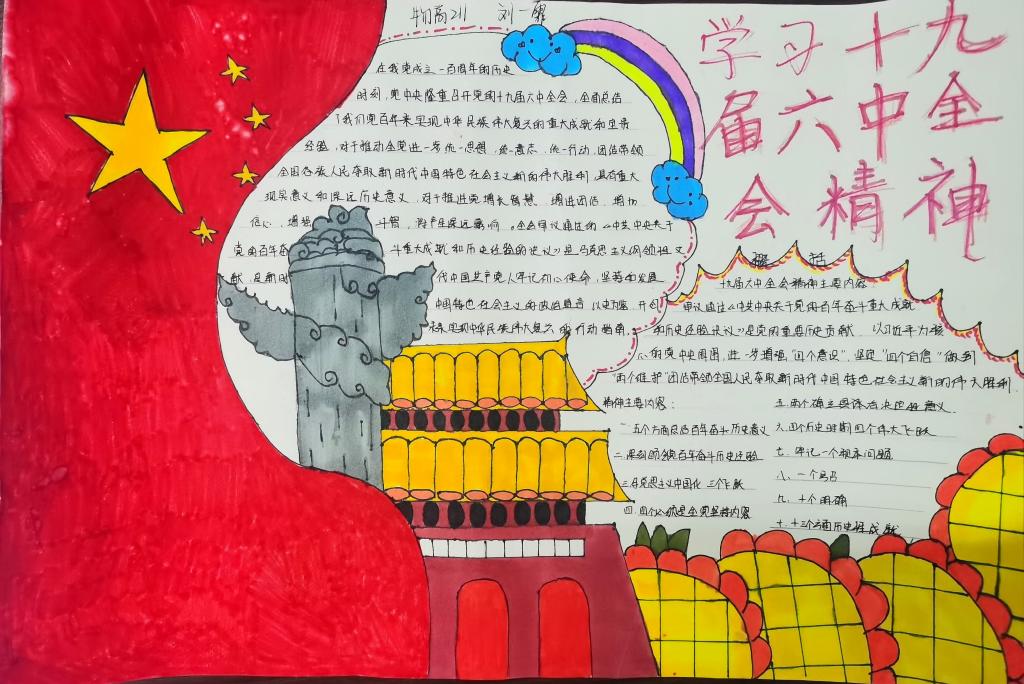 刘一
学习十九
届六中全
会精神
在我党成立一百周年的历史
时刻，党中央隆重召开党的十九届六中全会，全面总结
了我们党百年来实现中华民族伟大复兴的重大成就和宝贵
经验，对于推动全党进一步统一思想，统一意志，统一行动，团结带领
全国各族人民夺取新时代中国特色社会主义新的伟大胜利，具有重大
现实意义和深远历史意义，对于推进党增长智慧、增进团结、增加
信心、增强 斗智，将产生深远影响。全会审议通过的《中共中央关于
党的百年奋 斗重大成就和历史经验的决议》是马克思主义纲领性文
献，是新时 代中国共产党人牢记初心使命，坚持和发展
中国特色社会主义的政治宣言，以史为鉴，开创
未来实现中华民族伟大复兴的行动指南。
十九届六中全会精神主要内容
审议通过《中共中央关于党的百年奋斗重大成就
和历史经验决议》是党的重要历史贡献，以习近平为核
心的党中央周围，进一步增强"四个意识"，坚定"四个自信"做到
"两个维护"团结带领全国人民夺取新时代中国特色社会主义新的伟大胜利.
精神主要内容：
一.五个方面总结百年奋斗历史意义
二.深刻领会党百年奋斗历史经验
三.马克思主义中国化 三个飞跃
四.四个 全党坚持内容
五.两个确立具体后决定性意义.
六.四个历史时期四个伟大飞跃
七.牢记一个根本问题
八.一个号召
九.十个明确
十.十三个方面历史性成就